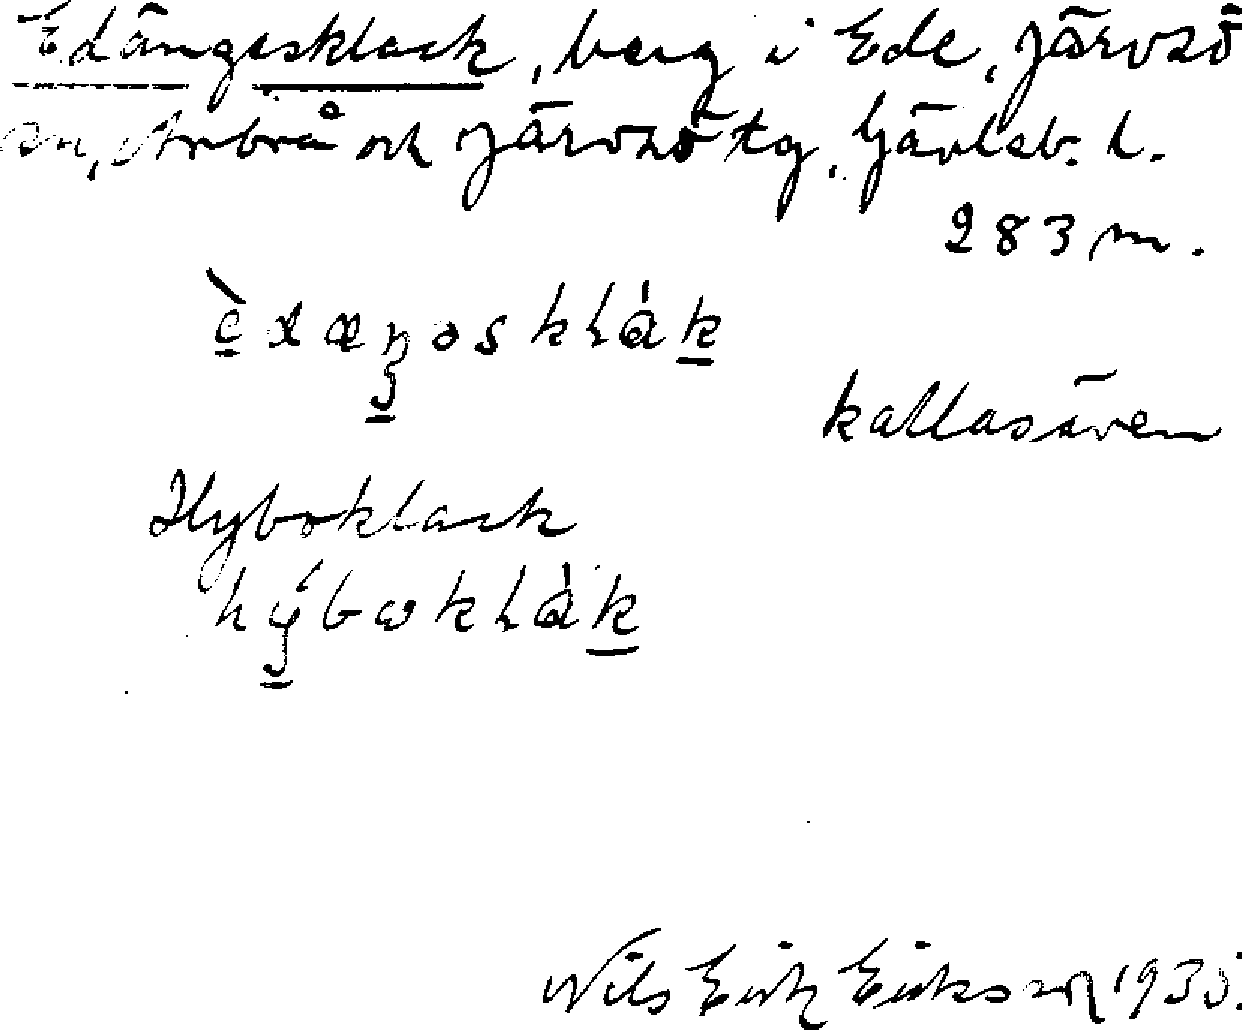 Edängesklack, berg i Ede, Järvsö
sn, Arbrå och Järvsö tg, Gävleb. l.
283 m.
èdæŋəsklák
kallas även
Hyboklack
hýbωklàk
Nils Erik Eriksson 1935.